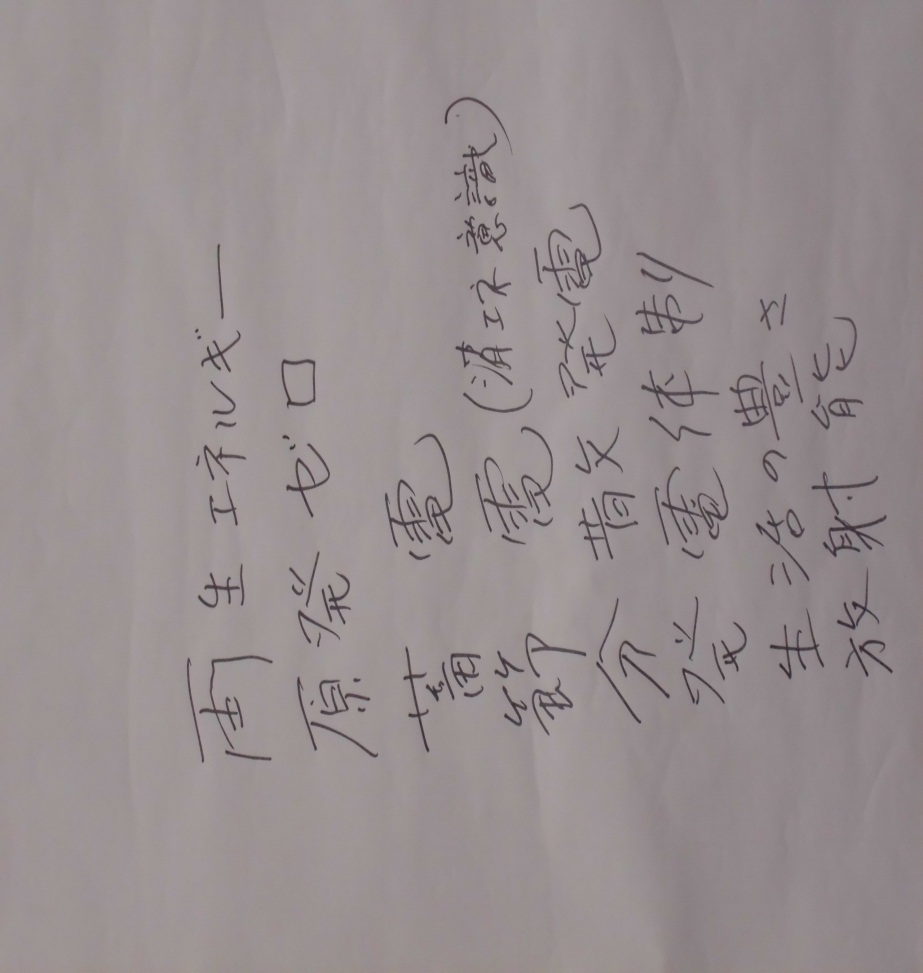 再生エネルギー
原発ゼロ
蓄電
節電(消エネ意識)
分散発電
発電体制
生活の豊さ
放射能